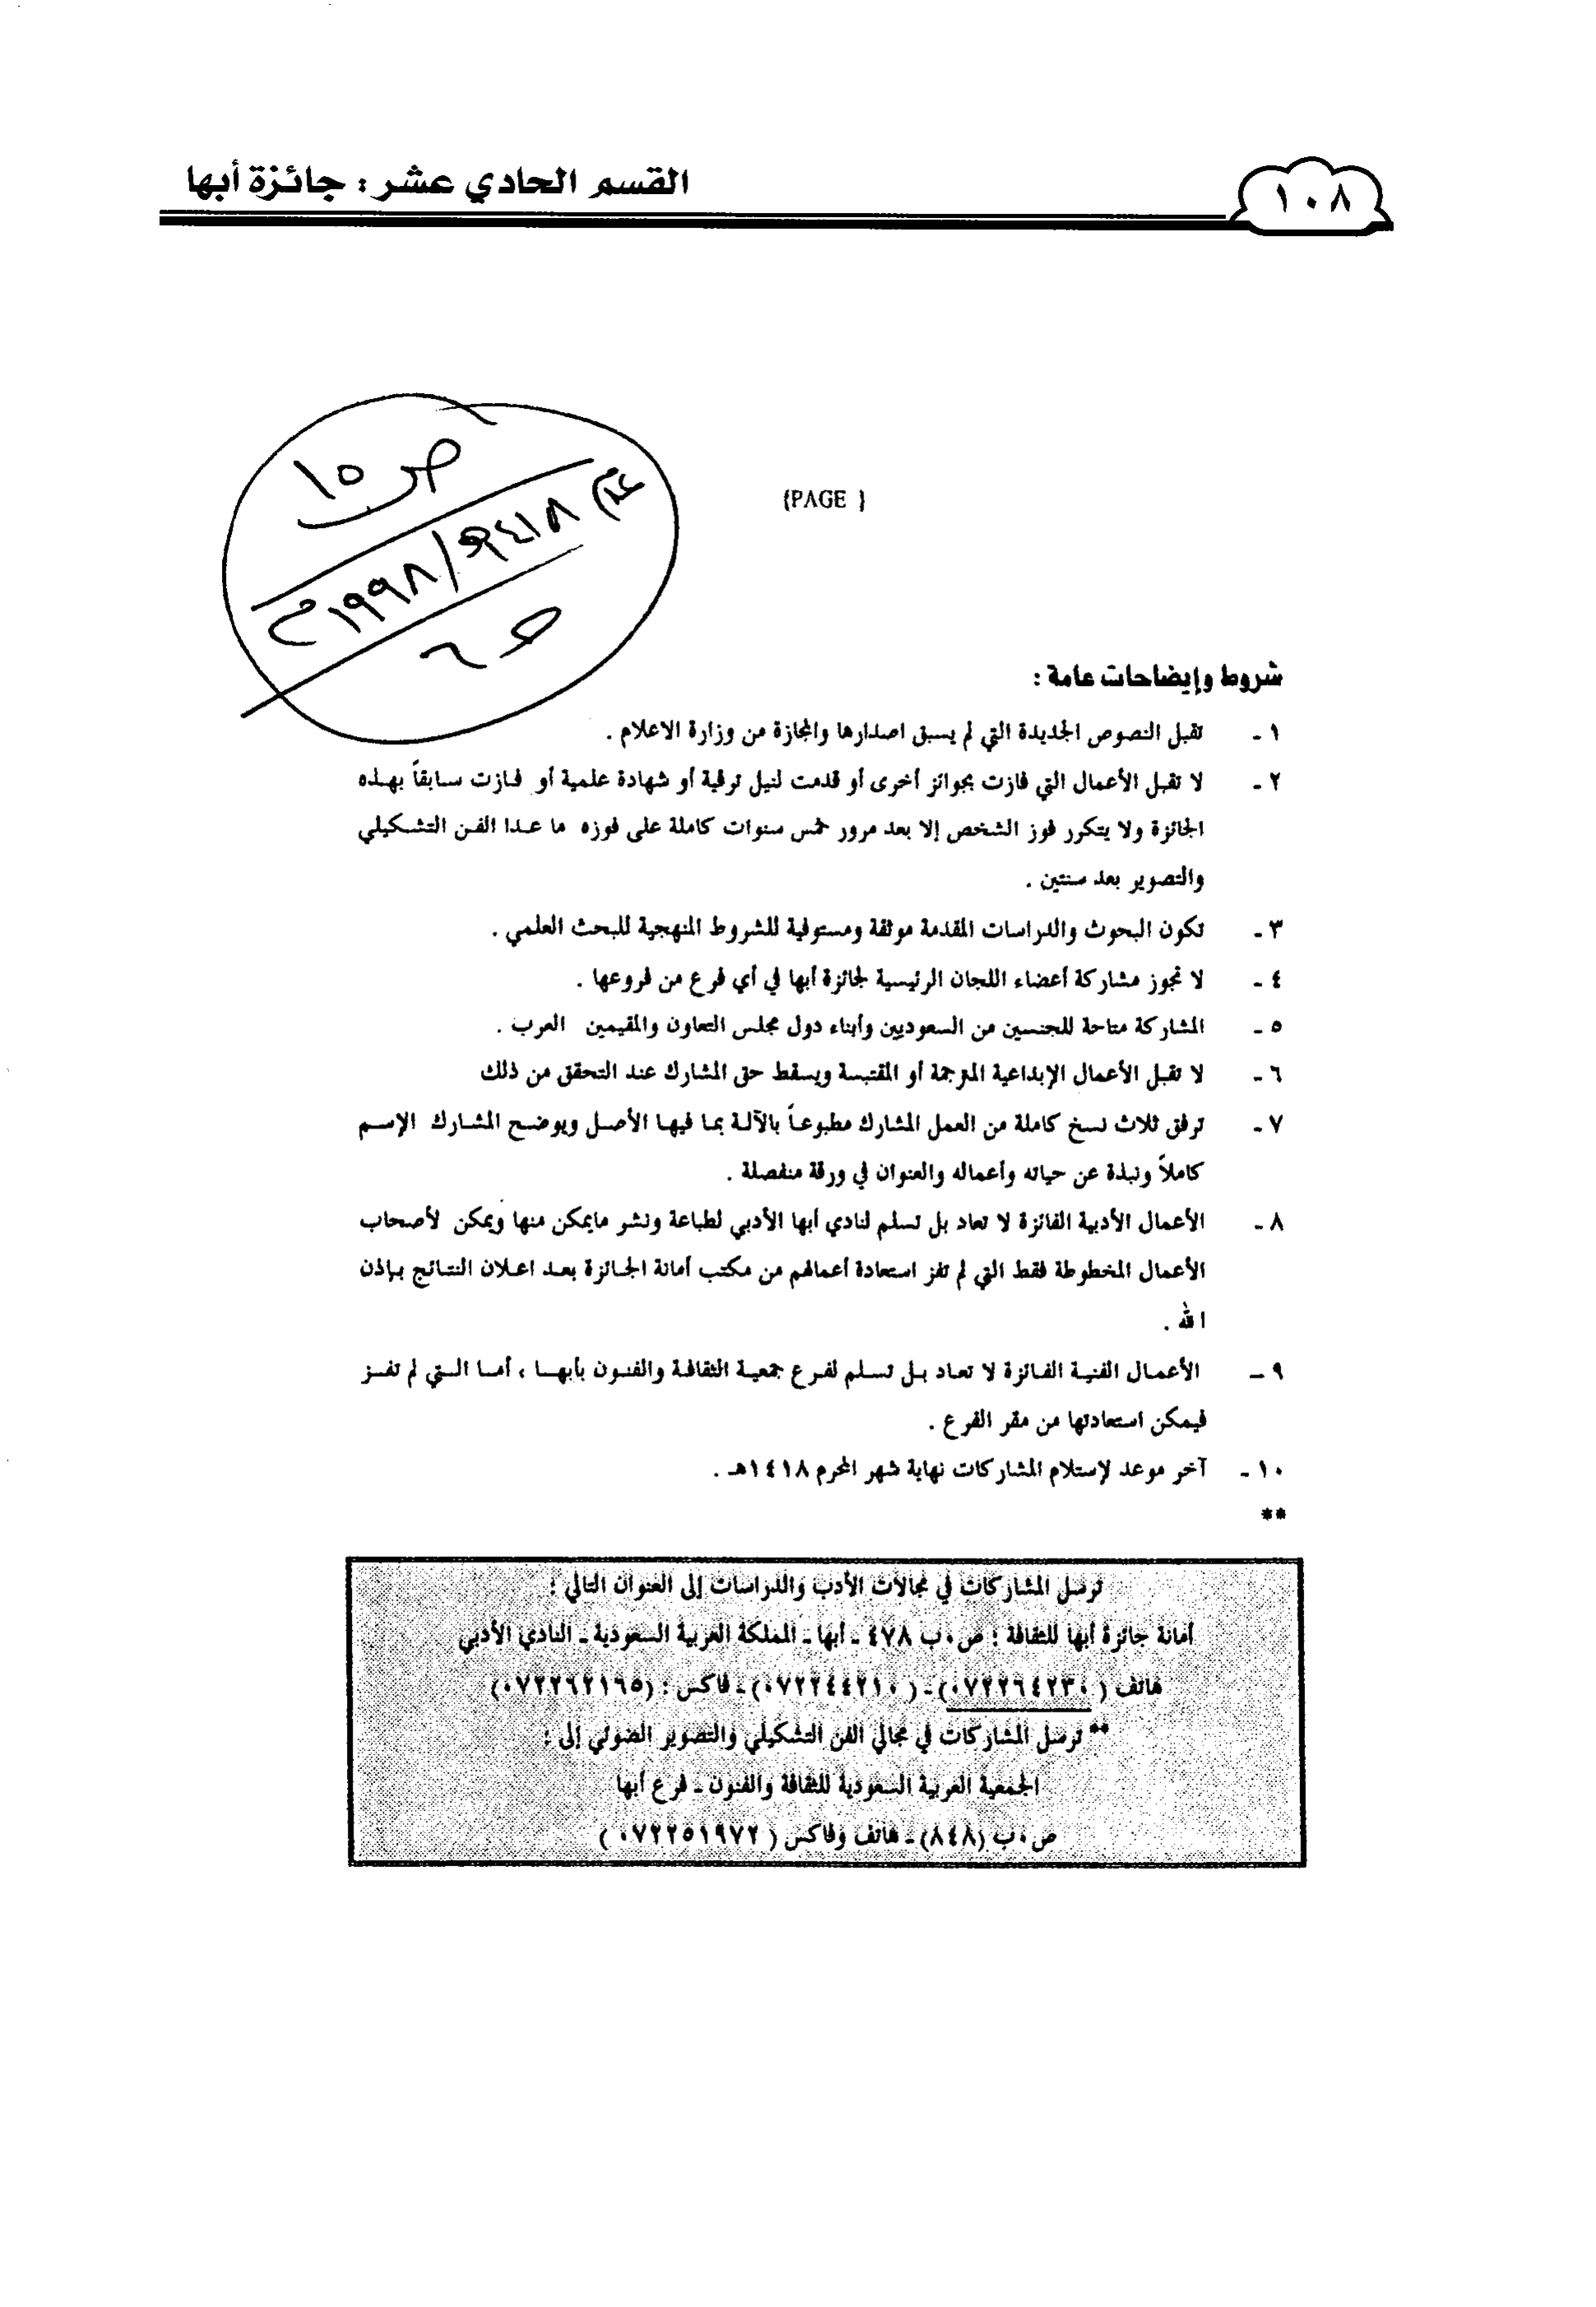 ١٠٨
القسم الحادي عشر : جائزة أبها
ص ١٥
عام ١٤١٨هـ/١٩٩٨م
{PAGE }
شروط وإيضاحات عامة :
١ - تقبل النصوص الجديدة التي لم يسبق اصدارها والمجازة من وزارة الاعلام .
٢ - لا تقبل الأعمال التي فازت بجوائز أخرى أو قدمت لنيل ترقية أو شهادة علمية أو فازت سابقاً بهذه
الجائزة ولا يتكرر فوز الشخص إلا بعد مرور خمس سنوات كاملة على فوزه ما عدا الفن التشكيلي
والتصوير بعد سنتين .
٣ - تكون البحوث والدراسات المقدمة موثقة ومستوفية للشروط المنهجية للبحث العلمي .
٤ - لا تجوز مشاركة أعضاء اللجان الرئيسية لجائزة أبها في أي فرع من فروعها .
٥ - المشاركة متاحة للجنسين من السعوديين وأبناء دول مجلس التعاون والمقيمين العرب .
٦ - لا تقبل الأعمال الإبداعية المترجمة أو المقتبسة ويسقط حق المشارك عند التحقق من ذلك
٧ - ترفق ثلاث نسخ كاملة من العمل المشارك مطبوعاً بالآلة بما فيها الأصل ويوضح المشارك الإسم
كاملاً ونبذة عن حياته وأعماله والعنوان في ورقة منفصلة .
٨ - الأعمال الأدبية الفائزة لا تعاد بل تسلم لنادي أبها الأدبي لطباعة ونشر مايمكن منها ويمكن لأصحاب
الأعمال المخطوطة فقط التي لم تفز استعادة أعمالهم من مكتب أمانة الجائزة بعد اعلان النتائج بإذن
الله .
٩ - الأعمال الفنية الفائزة لا تعاد بل تسلم لفرع جمعية الثقافة والفنون بأبها ، أما التي لم تفز
فيمكن استعادتها من مقر الفرع .
١٠ - آخر موعد لإستلام المشاركات نهاية شهر المحرم ١٤١٨هـ .
**
ترسل المشاركات في مجالات الأدب والدراسات إلى العنوان التالي :
أمانة جائزة أبها للثقافة : ص.ب ٤٧٨ - أبها - المملكة العربية السعودية - النادي الأدبي
هاتف ( ٠٧٢٢٦٤٢٣٠) - ( ٠٧٢٢٤٤٢١٠) - فاكس : (٠٧٢٢٦٢١٦٥)
** ترسل المشاركات في مجالي الفن التشكيلي والتصوير الضوئي إلى :
الجمعية العربية السعودية للثقافة والفنون - فرع أبها
ص.ب (٨٤٨) - هاتف وفاكس ( ٠٧٢٢٥١٩٧٢ )